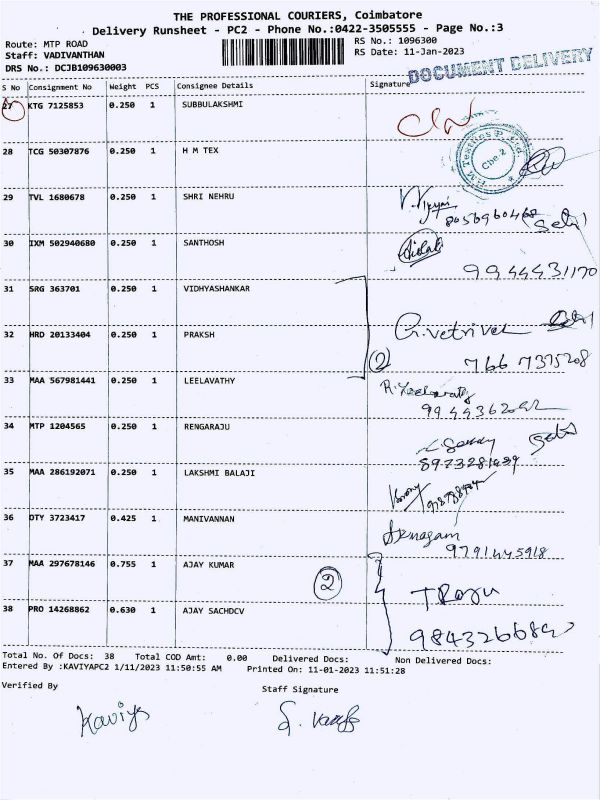 THE PROFESSIONAL COURIERS, Coimbatore
Delivery Runsheet - PC2 - Phone No.:0422-3505555 - Page No.:3
Route: MTP ROAD RS No.: 1096300
Staff: VADIVANTHAN RS Date: 11-Jan-2023
DRS No.: DCJB109630003 DOCUMENT DELIVERY
S No Consignment No Weight PCS Consignee Details Signature
27 KTG 7125853 0.250 1 SUBBULAKSHMI
28 TCG 50307876 0.250 1 H M TEX
Cbe-2
29 TVL 1680678 0.250 1 SHRI NEHRU
30 IXM 502940680 0.250 1 SANTHOSH
9944431170
31 SRG 363701 0.250 1 VIDHYASHANKAR
32 HRD 20133404 0.250 1 PRAKSH
2 766 7375208
33 MAA 567981441 0.250 1 LEELAVATHY
34 MTP 1204565 0.250 1 RENGARAJU
35 MAA 286192071 0.250 1 LAKSHMI BALAJI
36 OTY 3723417 0.425 1 MANIVANNAN
9791445918
37 MAA 297678146 0.755 1 AJAY KUMAR
2
38 PRO 14268862 0.630 1 AJAY SACHDCV
Total No. Of Docs: 38 Total COD Amt: 0.00 Delivered Docs: Non Delivered Docs:
Entered By :KAVIYAPC2 1/11/2023 11:50:55 AM Printed On: 11-01-2023 11:51:28
Verified By Staff Signature
Kaviya